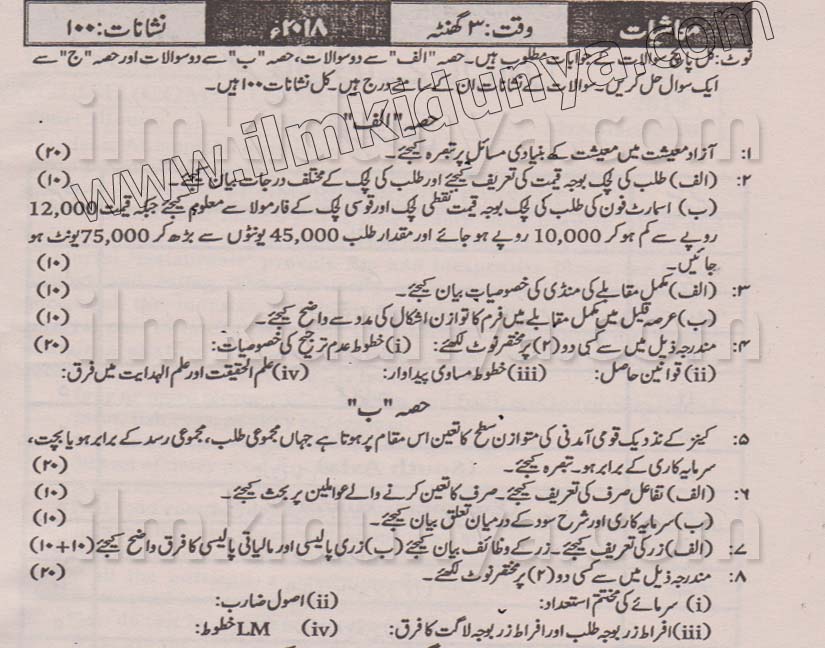 معاشیات وقت: ۳ گھنٹہ ۲۰۱۸ء نشانات: ۱۰۰
نوٹ: کل پانچ سوالات کے جوابات مطلوب ہیں۔ حصہ "الف" سے دو سوالات، حصہ "ب" سے دو سوالات اور حصہ "ج" سے
ایک سوال حل کریں۔ سوالات کے نشانات ان کے سامنے درج ہیں۔ کل نشانات ۱۰۰ ہیں۔
حصہ "الف"
۱: آزاد معیشت میں معیشت کے بنیادی مسائل پر تبصرہ کیجئے۔ (۲۰)
۲: (الف) طلب کی لچک بوجہ قیمت کی تعریف کیجئے اور طلب کی لچک کے مختلف درجات بیان کیجئے۔ (۱۰)
(ب) اسمارٹ فون کی طلب کی لچک بوجہ قیمت نقطی لچک اور قوسی لچک کے فارمولا سے معلوم کیجئے جبکہ قیمت 12,000
روپے سے کم ہو کر 10,000 روپے ہو جائے اور مقدار طلب 45,000 یونٹوں سے بڑھ کر 75,000 یونٹ ہو
جائیں۔ (۱۰)
۳: (الف) مکمل مقابلے کی منڈی کی خصوصیات بیان کیجئے۔ (۱۰)
(ب) عرصہ قلیل میں مکمل مقابلے میں فرم کا توازن اشکال کی مدد سے واضح کیجئے۔ (۱۰)
۴: مندرجہ ذیل میں سے کسی دو (۲) پر مختصر نوٹ لکھئے: (i) خطوط عدم ترجیح کی خصوصیات: (۲۰)
(ii) قوانین حاصل: (iii) خطوط مساوی پیداوار: (iv) علم الحقیقت اور علم الہدایت میں فرق:
حصہ "ب"
۵: کینز کے نزدیک قومی آمدنی کی متوازن سطح کا تعین اس مقام پر ہوتا ہے جہاں مجموعی طلب، مجموعی رسد کے برابر ہو یا بچت،
سرمایہ کاری کے برابر ہو۔ تبصرہ کیجئے۔ (۲۰)
۶: (الف) تفاعل صرف کی تعریف کیجئے۔ صرف کا تعین کرنے والے عوامل پر بحث کیجئے۔ (۱۰)
(ب) سرمایہ کاری اور شرح سود کے درمیان تعلق بیان کیجئے۔ (۱۰)
۷: (الف) زر کی تعریف کیجئے۔ زر کے وظائف بیان کیجئے (ب) زری پالیسی اور مالیاتی پالیسی کا فرق واضح کیجئے (۱۰+۱۰)
۸: مندرجہ ذیل میں سے کسی دو (۲) پر مختصر نوٹ لکھئے۔ (۲۰)
(i) سرمائے کی مختتم استعداد: (ii) اصول ضارب:
(iii) افراط زر بوجہ طلب اور افراط زر بوجہ لاگت کا فرق: (iv) LM خطوط:
www.ilmkidunya.com
ilmkidunya.com
ilmkidunya.com
ilmkidunya.com